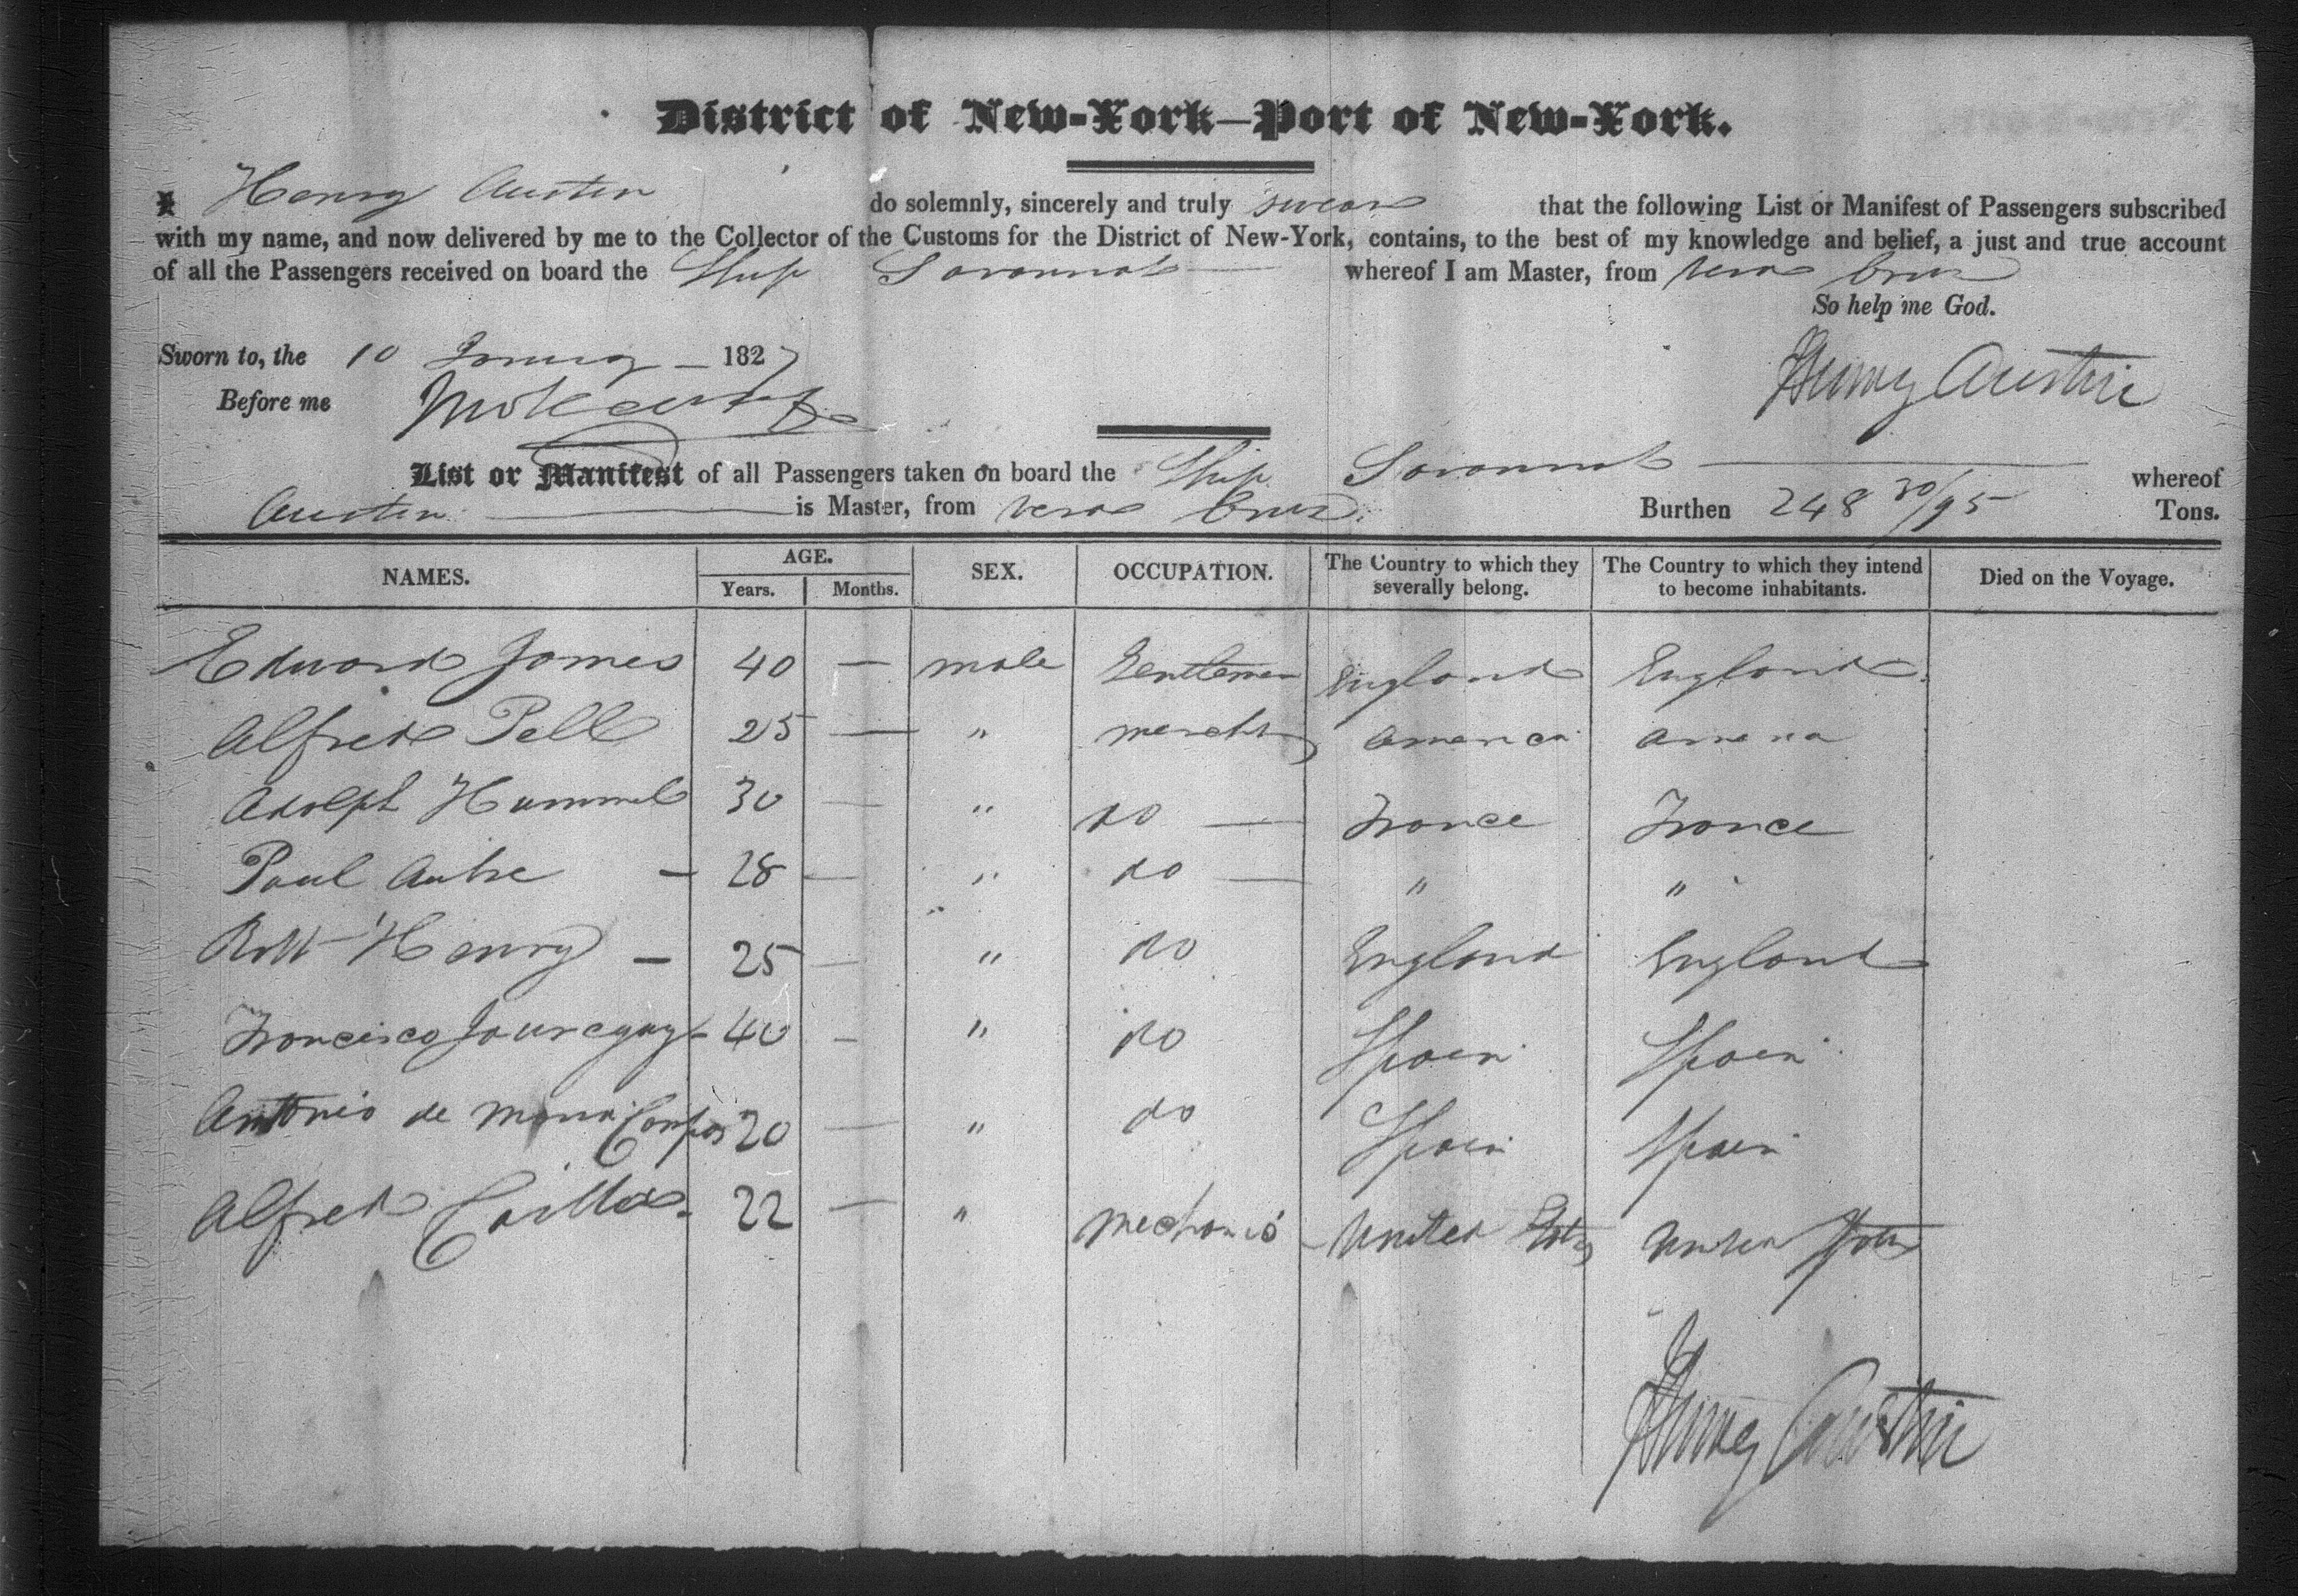 District of New-York—Port of New-York.
I Henry Austin do solemnly, sincerely and truly swear that the following List or Manifest of Passengers subscribed
with my name, and now delivered by me to the Collector of the Customs for the District of New-York, contains, to the best of my knowledge and belief, a just and true account
of all the Passengers received on board the Ship Savannah whereof I am Master, from Vera Cruz
So help me God.
Sworn to, the 10 January 1827
Henry Austin
Before me
List or Manifest of all Passengers taken on board the Ship Savannah whereof
Austin is Master, from Vera Cruz. Burthen 248 30/95 Tons.
NAMES. AGE. Years. Months. SEX. OCCUPATION. The Country to which they severally belong. The Country to which they intend to become inhabitants. Died on the Voyage.
Edward James 40 — male Gentleman England England
Alfred Pell 25 — " mercht America America
Adolph Hummel 30 — " do — France France
Paul Aubre — 28 — " do — " "
Robt Henry — 25 — " do England England
Francisco Jaureguy 40 — " do Spain Spain
Antonio de Campos 20 — " do Spain Spain
Alfred 22 — " mechanic United States United States
Henry Austin